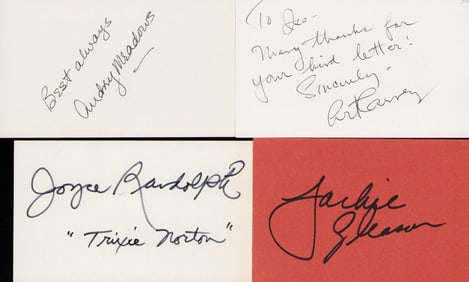 Best always
Audrey Meadows
To Joe-
Many thanks for
your kind letter!
Sincerely-
Art Carney
Joyce Randolph
"Trixie Norton"
Jackie
Gleason